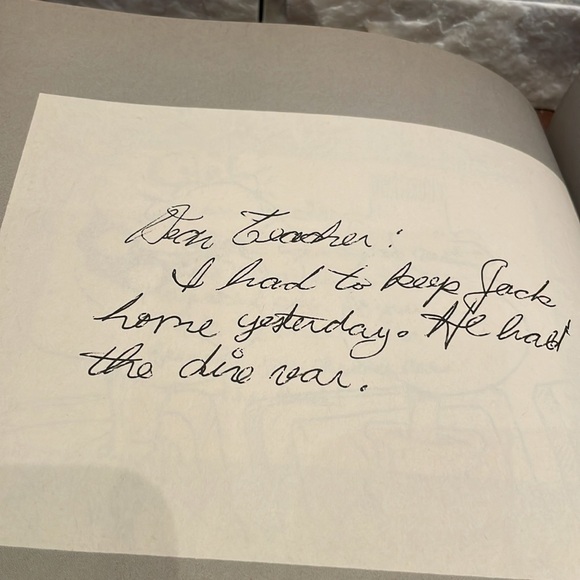 Dear Teacher:
I had to keep Jack
home yesterday. He had
the dire rear.